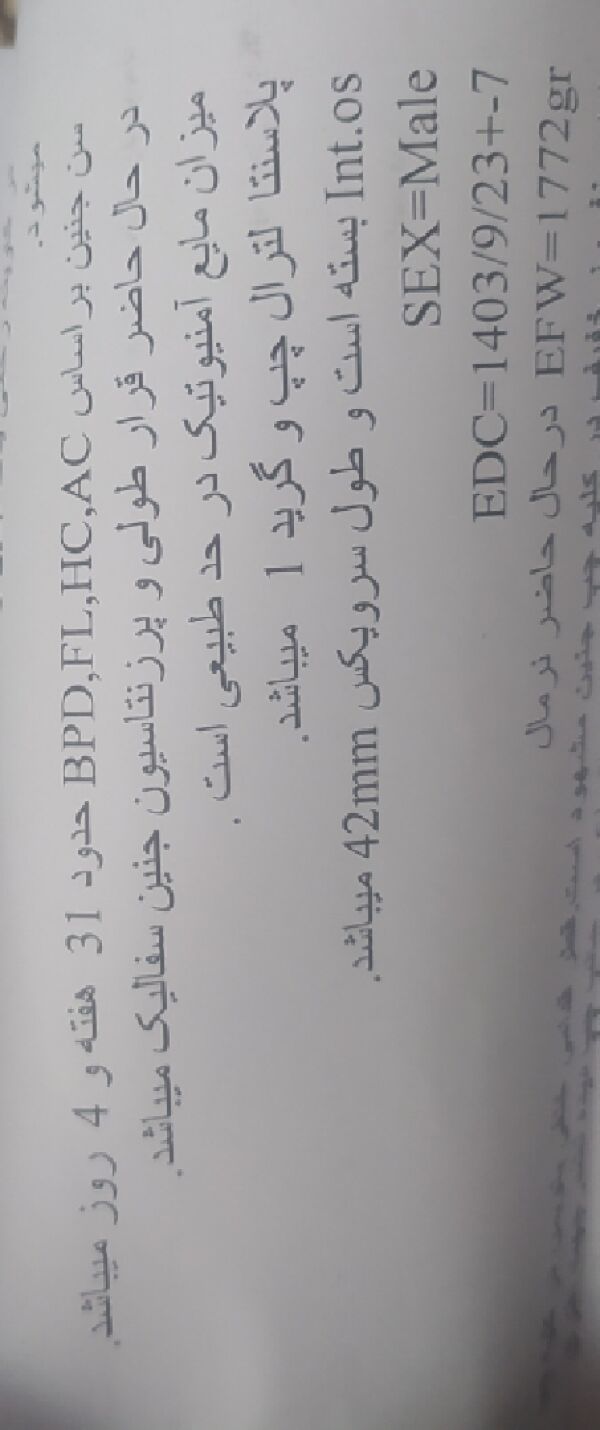 میشود.
سن جنین بر اساس BPD,FL,HC,AC حدود 31 هفته و 4 روز میباشد.
در حال حاضر قرار طولی و پرزنتاسیون جنین سفالیک میباشد.
میزان مایع آمنیوتیک در حد طبیعی است .
پلاسنتا لترال چپ و گرید 1 میباشد.
Int.os بسته است و طول سرویکس 42mm میباشد.
SEX=Male
EDC=1403/9/23+-7
EFW=1772gr درحال حاضر نرمال
خفیف در کلیه چپ جنین مشهود است.